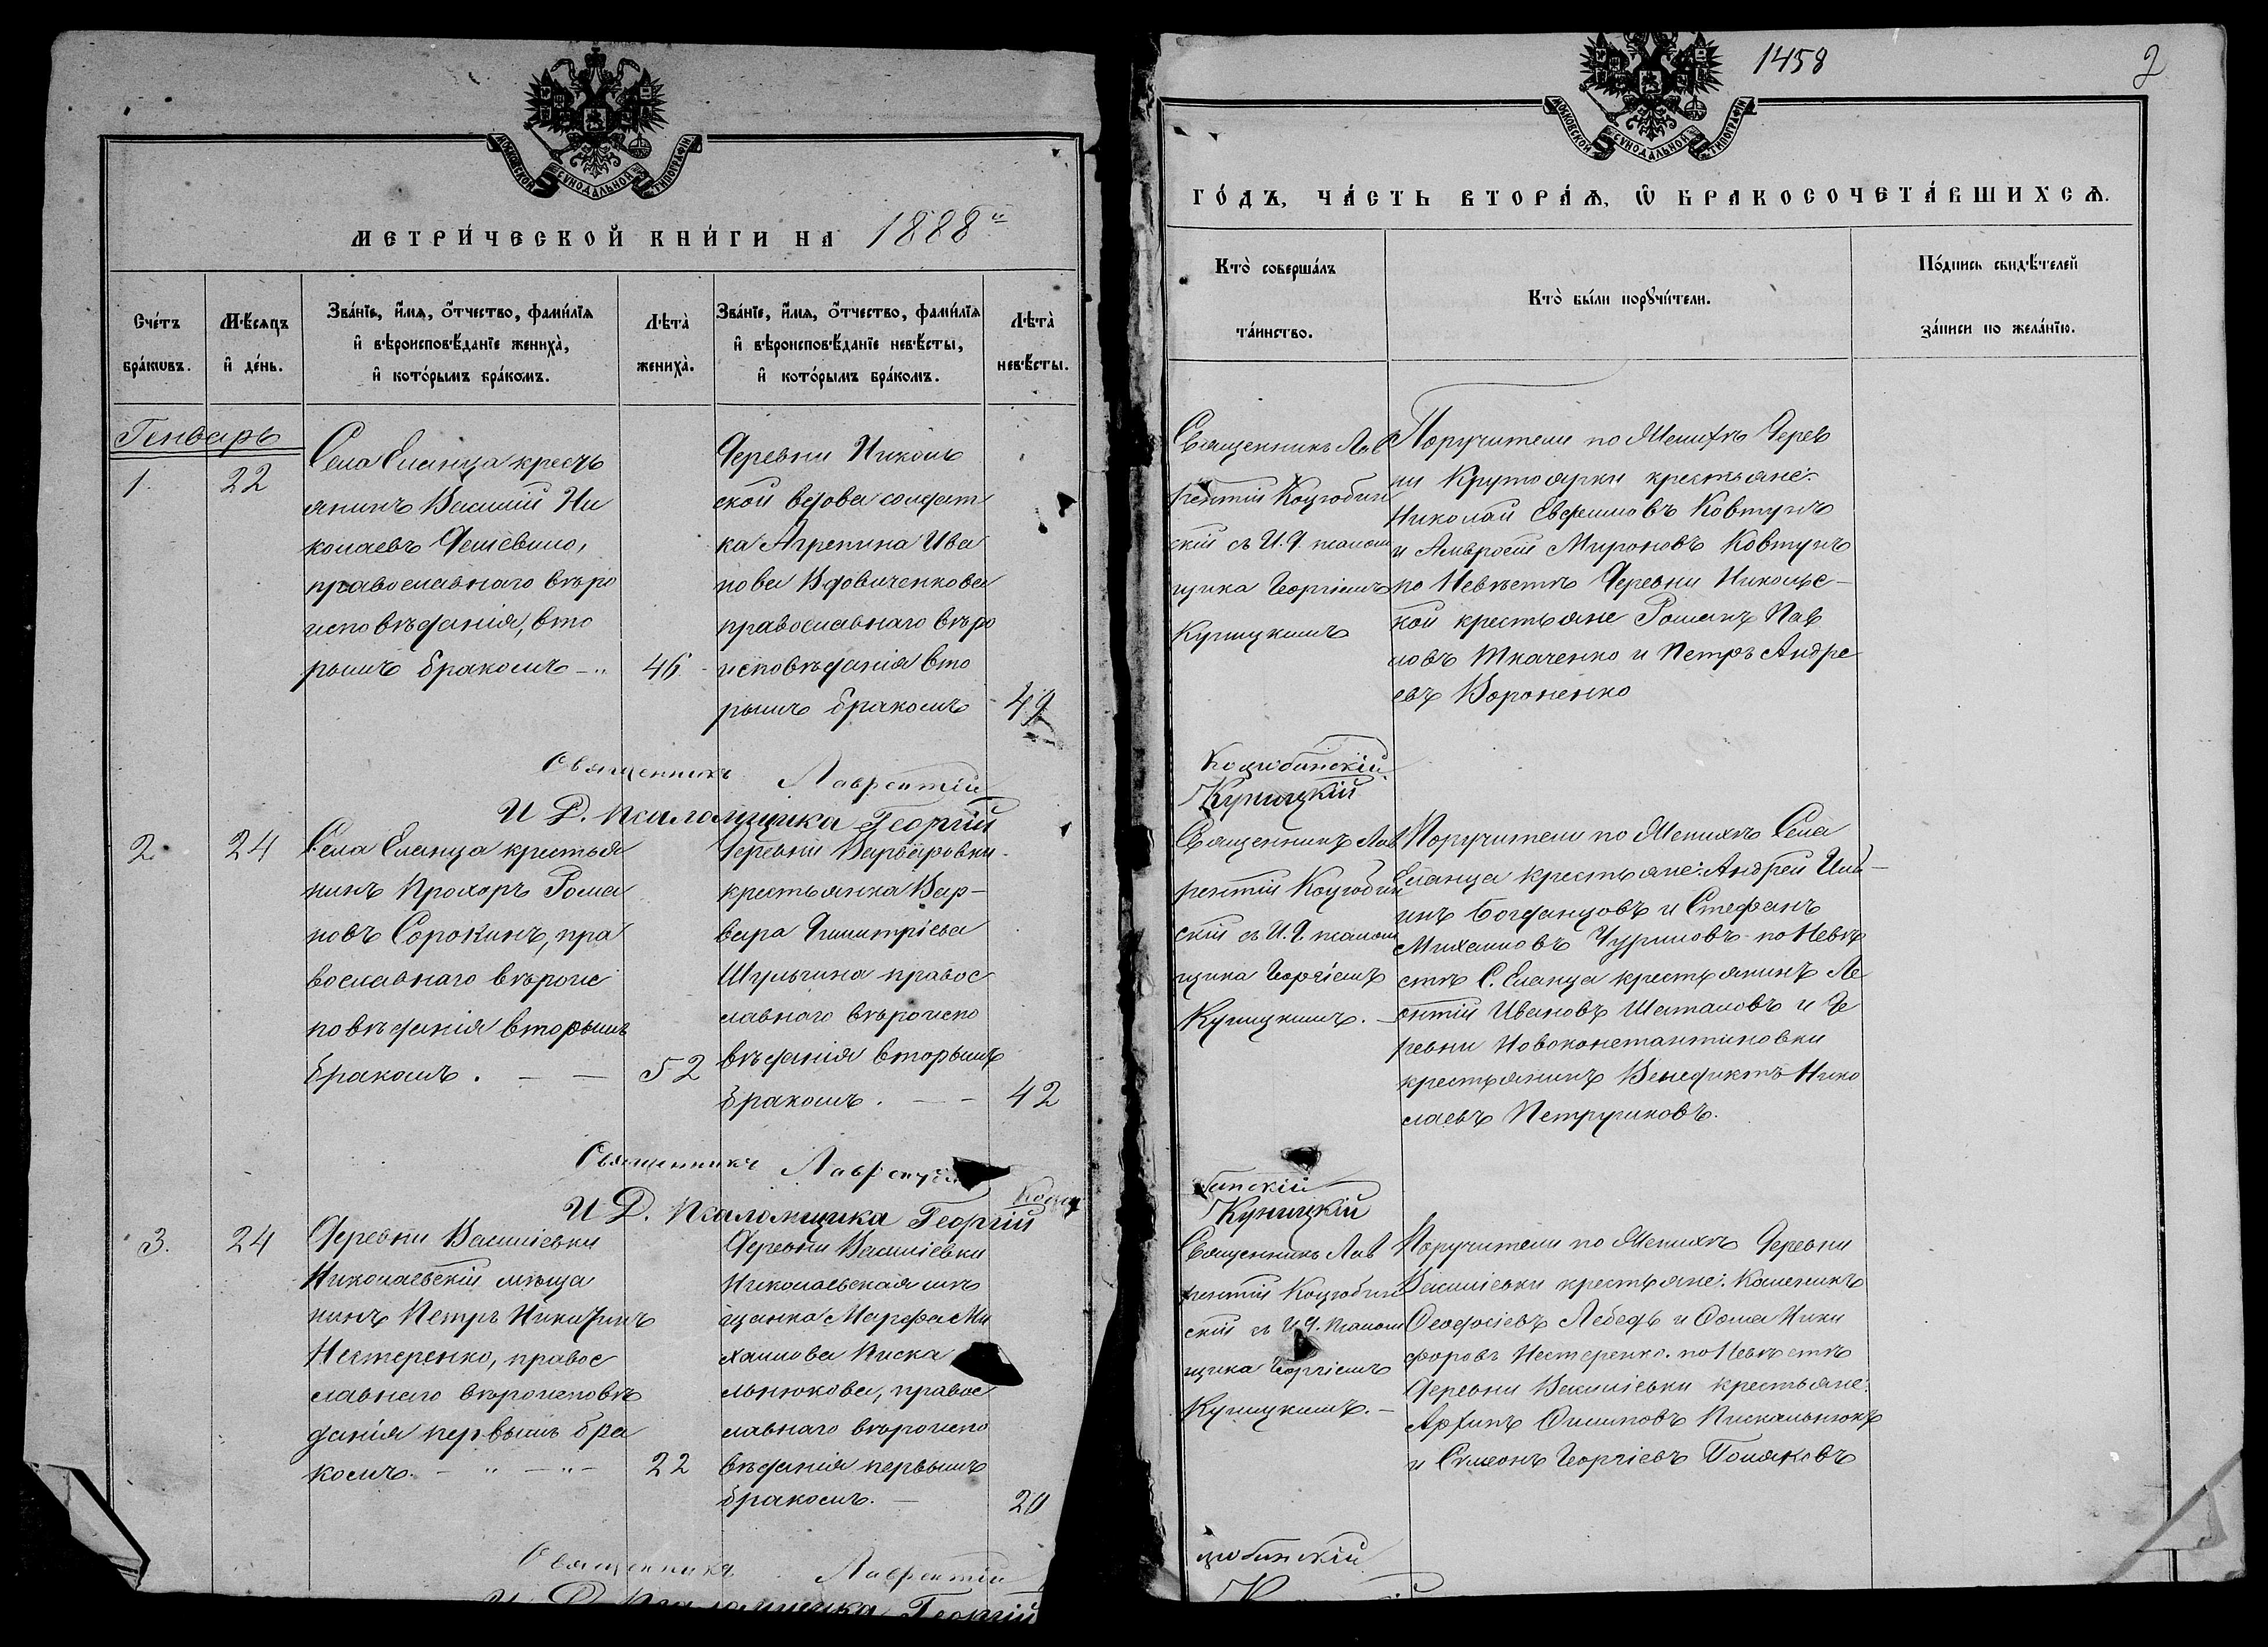 МОСКОВСКОЙ СѴНОДАЛЬНОЙ ТИПОГРАФІИ
МЕТРИ́ЧЕСКОЙ КНИ́ГИ НА 1888й
Сче́тъ бра́кѡвъ.
Мѣ́сяцъ и҆ де́нь.
Зва́нїе, и҆́мѧ, ѻ҆́тчество, фами́лїѧ
и҆ вѣроисповѣ́данїе жениха̀,
и҆ кото́рымъ бра́комъ.
Лѣта̀ жениха̀.
Зва́нїе, и҆́мѧ, ѻ҆́тчество, фами́лїѧ
и҆ вѣроисповѣ́данїе невѣ́сты,
и҆ кото́рымъ бра́комъ.
Лѣта̀ невѣ́сты.
Генварь
1.
22
Села Еланца кресть
янинъ Василій Ни
колаевъ
православнаго вѣро
исповѣданія, вто
рымъ бракомъ
46.
Деревни Николь
ской вдова солдат
ка Агрепина Ива
нова Вдовиченкова
православнаго вѣро
исповѣданія вто
рымъ бракомъ
49
Священникъ Лаврентій
И Д. Псаломщика Георгій
2.
24
Села Еланца крестья
нинъ Прохоръ Рома
новъ Сорокинъ, пра
вославнаго вѣроис
повѣданія вторымъ
бракомъ.
52
Деревни Варваровки
крестьянка Вар-
вара Димитріева
Шульгина правос
лавнаго вѣроиспо
вѣданія вторымъ
бракомъ.
42
Священникъ Лаврентій Коцю
И Д. Псаломщика Георгій
3.
24
Деревни Василіевки
Николаевскій мѣща
нинъ Петръ Никифоровъ
Нестеренко, правос
лавнаго вѣроисповѣ
данія первымъ бра
комъ.
22
Деревни Василіевки
Николаевская мѣ
щанка Марфа Ми
хаилова Писка
льнюкова, правос
лавнаго вѣроиспо
вѣданія первымъ
бракомъ.
20
Священникъ Лаврентій
И Д. Псаломщика Георгій
1458
2
МОСКОВСКОЙ СѴНОДАЛЬНОЙ ТИПОГРАФІИ
ГО́ДЪ, ЧА́СТЬ ВТОРА́Ѧ, Ѡ҆ БРАКОСОЧЕТА́ВШИХСѦ.
Кто̀ соверша́лъ
та́инство.
Кто̀ бы́ли порꙋчи́тели.
По́дпись свидѣ́телей
за́писи по жела́нїю.
Священникъ Лав
рентій Коцюбин
скій съ И. Д. псалом
щика Георгіемъ
Куницкимъ
Поручители по Женихѣ Дерев
ни Крутоярки крестьяне:
Николай Евфимовъ Ковтунъ
и Амвросій Мироновъ Ковтунъ
по Невѣстѣ Деревни Николь-
кой крестьяне Романъ Пав
ловъ Ткаченко и Петръ Андре
евъ Вороненко
Коцюбинскій
Куницкій
Священникъ Лав
рентій Коцюбин
скій съ И. Д. псалом
щика Георгіемъ
Куницкимъ.
Поручители по Женихѣ Села
Еланца крестьяне: Андрей Иль-
инъ Богданцовъ и Стефанъ
Михаиловъ Чуриловъ по Невѣ
стѣ С. Еланца крестьянинъ Ле
онтій Ивановъ Шаталовъ и Де
ревни Новоконстантиновки
крестьянинъ Венедиктъ Нико
лаевъ Петруниковъ.
бинскій
Куницкій
Священникъ Лав
рентій Коцюбин
скій съ И. Д. псалом
щика Георгіемъ
Куницкимъ.
Поручители по Женихѣ Деревни
Василіевки крестьяне: Калиникъ
Феодосіевъ Лебедь и Фома Ники
форовъ Нестеренко. по Невѣстѣ
Деревни Василіевки крестьяне:
Филиповъ Пискальнюкъ
и Симеонъ Георгіевъ Поляковъ
цюбинскій